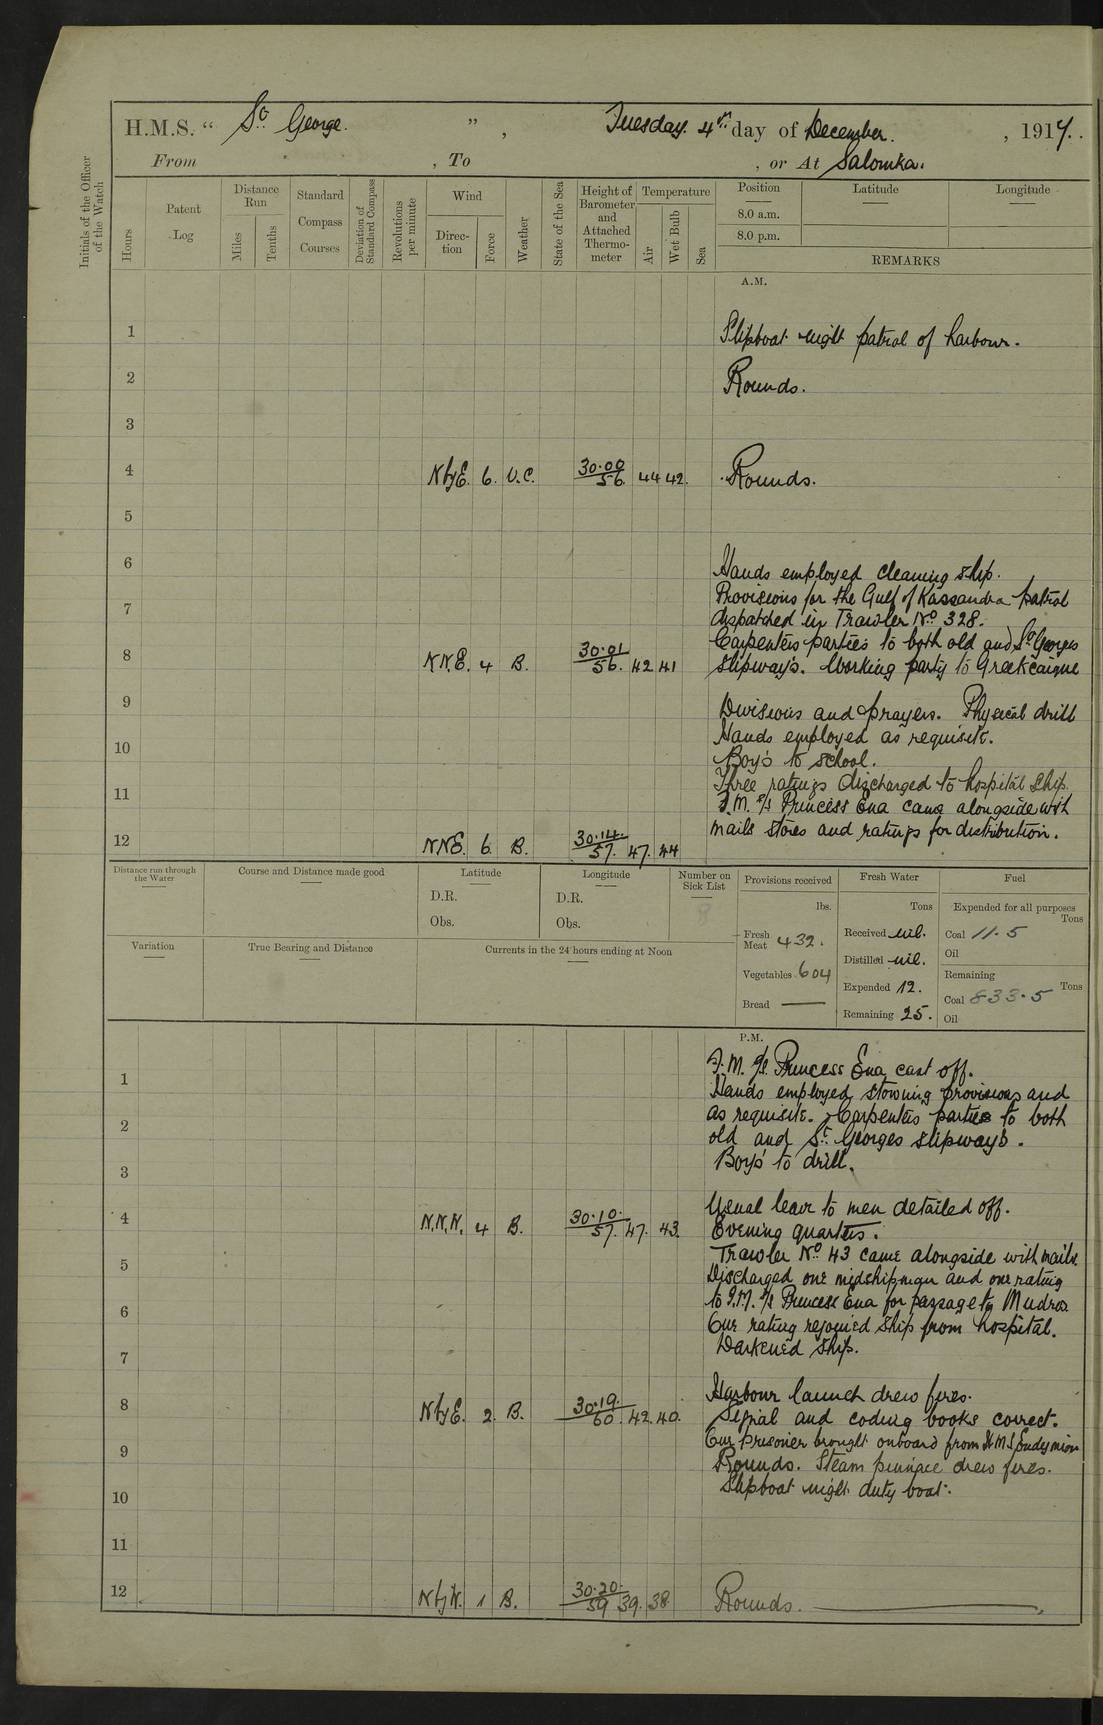 H.M.S. "St George.", Tuesday. 4th day of December., 1917.
From , To , or At Salonika.
Initials of the Officer of the Watch
Hours
Patent Log
Distance Run
Miles
Tenths
Standard Compass Courses
Deviation of Standard Compass
Revolutions per minute
Wind
Direc-tion
Force
Weather
State of the Sea
Height of Barometer and Attached Thermo-meter
Temperature
Air
Wet Bulb
Sea
Position
8.0 a.m.
8.0 p.m.
Latitude
Longitude
REMARKS
A.M.
1 Slipboat night patrol of harbour.
2 Rounds.
3
4 NbyE. 6. 30.00 56. 44 42. Rounds.
5
6 Hands employed cleaning ship.
7 Provisions for the Gulf of Kassandra patrol
dispatched in Trawler No 328.
Carpenters parties to both old and St Georges
8 NNE. 4 B. 30.01 56. 42 41 slipways. Working party to Greek caique
9 Divisions and prayers. Physical drill
10 Hands employed as requisite.
Boy's to school.
Three ratings discharged to hospital ship.
11 F.M. s/s Princess Ena came alongside with
12 NNE. 6. B. 30.14. 57. 47. 44 mails stores and ratings for distribution.
Distance run through the Water
Course and Distance made good
Latitude
D.R.
Obs.
Longitude
D.R.
Obs.
Number on Sick List
8
Provisions received
lbs.
Fresh Meat 432.
Vegetables 604
Bread —
Fresh Water
Tons
Received nil.
Distilled nil.
Expended 12.
Remaining 25.
Fuel
Expended for all purposes
Tons
Coal 11.5
Oil
Remaining
Tons
Coal 833.5
Oil
Variation
True Bearing and Distance
Currents in the 24 hours ending at Noon
P.M.
F.M. s/s. Princess Ena cast off.
1 Hands employed stowing provisions and
2 as requisite. Carpenters parties to both
old and St. Georges slipways.
3 Boys' to drill.
Usual leave to men detailed off.
4 N.N.W. 4 B. 30.10. 57. 47. 43. Evening quarters.
5 Trawler No 43 came alongside with mails
Discharged one midshipman and one rating
6 to F.M. s/s Princess Ena for passage to Mudros
One rating rejoined ship from hospital.
7 Darkened ship.
Harbour launch drew fires.
8 NbyE. 2. B. 30.19. 60. 42. 40. Signal and coding books correct.
9 One prisoner brought onboard from H.M.S. Endymion
Rounds. Steam pinnace drew fires.
10 Slipboat night duty boat.
11
12 NbyW. 1 B. 30.20. 59 39. 38 Rounds.